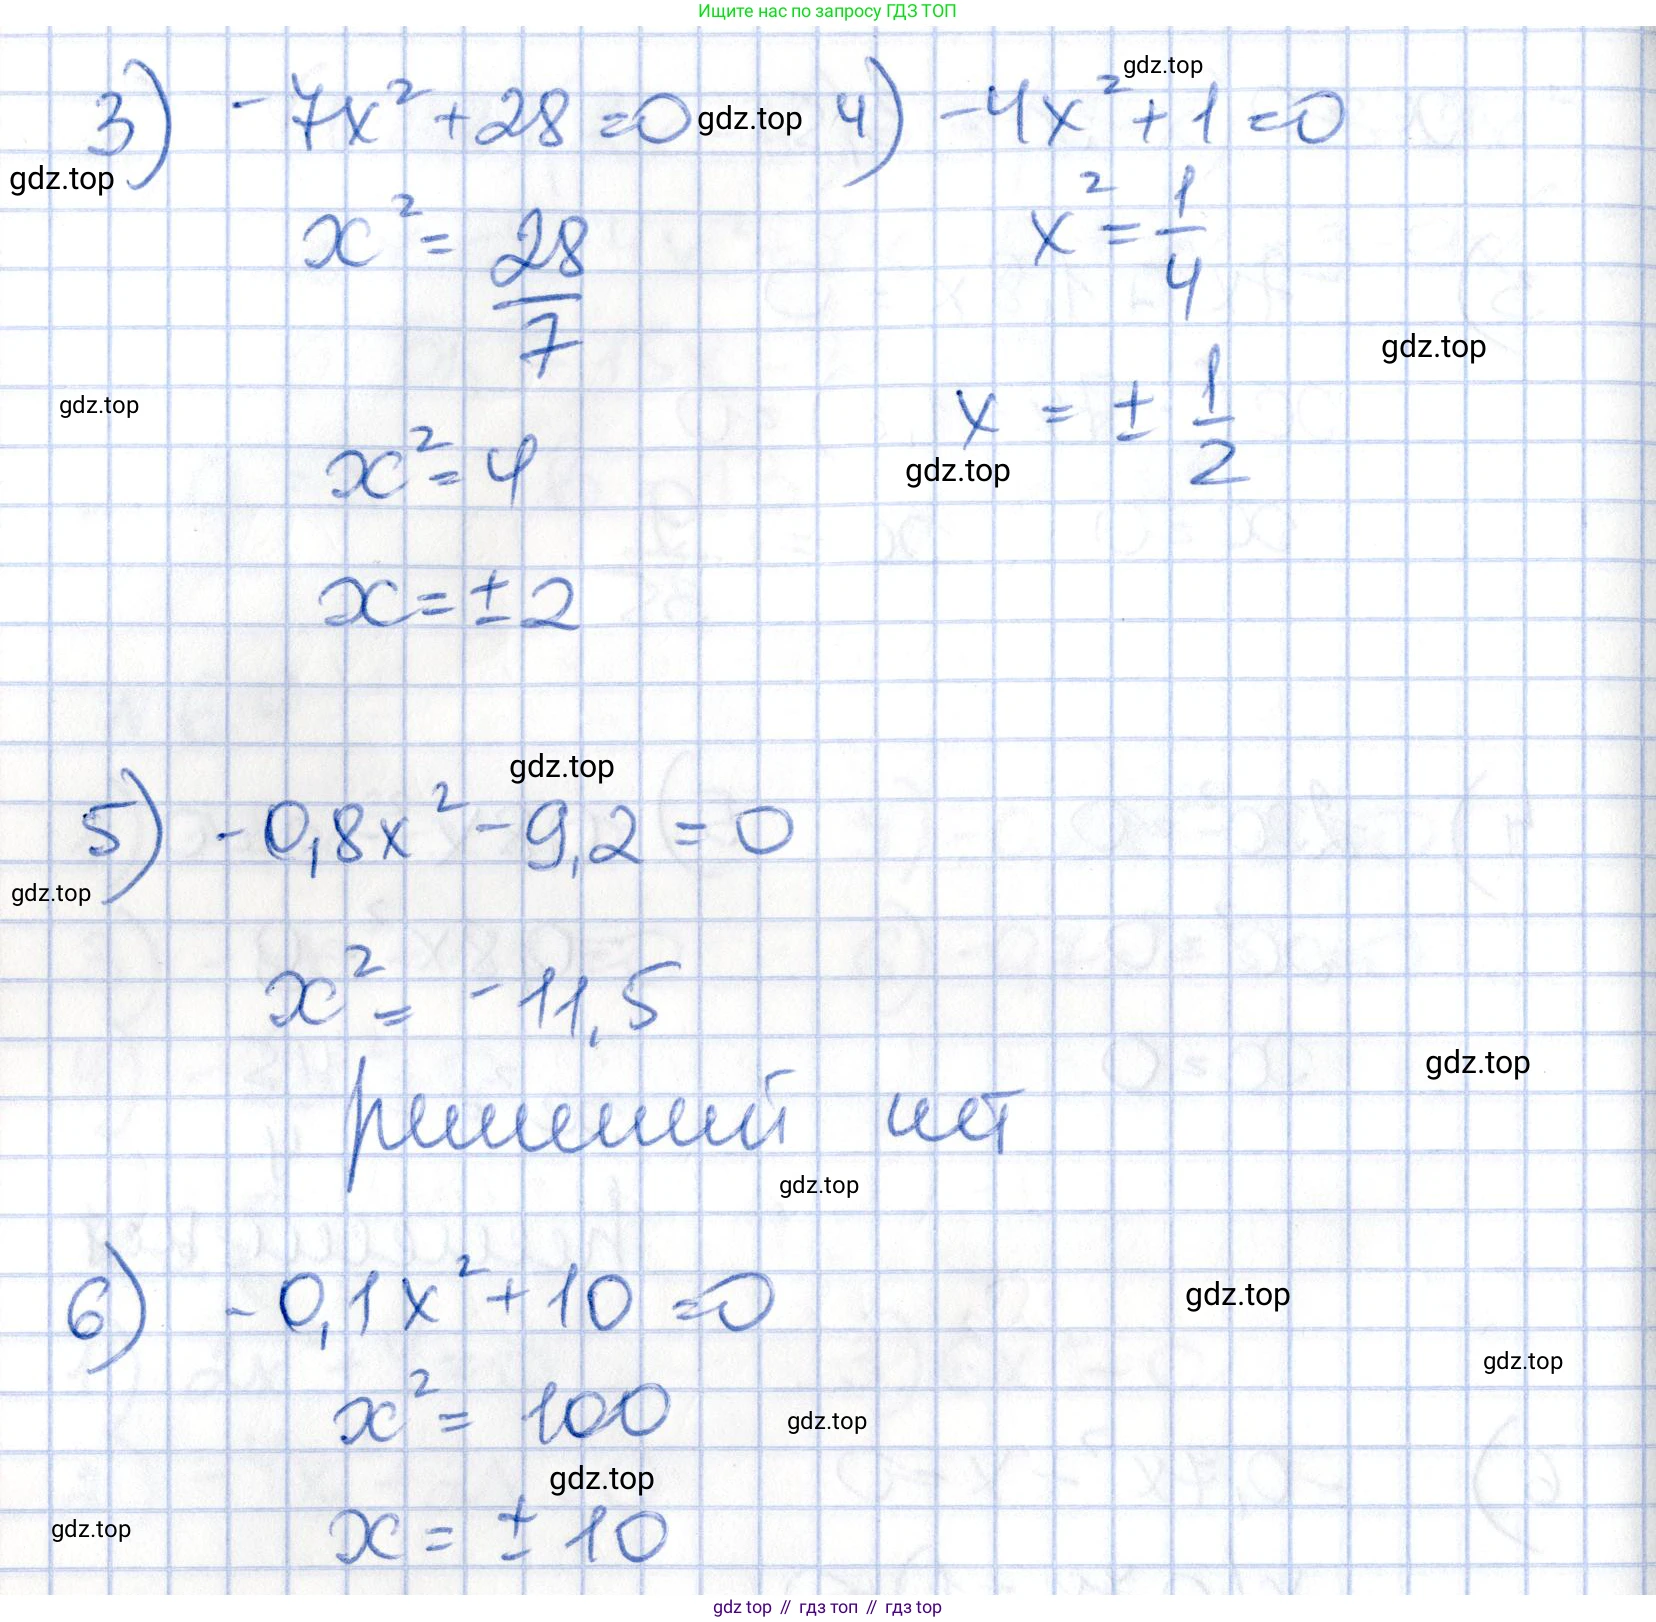 Ищите нас по запросу ГДЗ ТОП
gdz.top
3) -7x² + 28 = 0 gdz.top 4) -4x² + 1 = 0
gdz.top
x² = 28/7
x² = 1/4
gdz.top
gdz.top
x = ± 1/2
x² = 4
gdz.top
x = ± 2
gdz.top
5) -0,8x² - 9,2 = 0
gdz.top
x² = -11,5
gdz.top
решений нет
gdz.top
6) -0,1x² + 10 = 0
gdz.top
gdz.top
x² = 100
gdz.top
gdz.top
gdz.top
x = ± 10
gdz top // гдз топ // gdz top